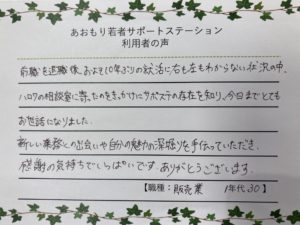 あおもり若者サポートステーション
利用者の声
前職を退職後、およそ10年ぶりの就活に右も左もわからない状況の中、
ハロワの相談室に来たのをきっかけにサポステの存在を知り、今日までとても
お世話になりました。
新しい業務との出会いや自分の魅力の深掘りを手伝っていただき、
感謝の気持ちでいっぱいです。ありがとうございます。
【職種：販売業 年代30】